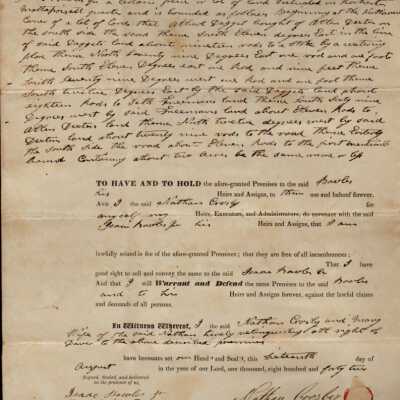 for a certain piece or lot of land situated in
Mattapoisett precinct and is bounded as follows Beginning at the Northeast
Corner of a lot of land that Allen Daggett bought of Allen Dexter on
the South side the road thence South Eleven degrees East in the line
of said Daggetts land about nineteen rods to a stake by a
thence North Seventy nine Degrees East one rod and one foot
thence South Eleven Degrees East one Rod and nine feet thence
South Seventy nine Degrees west one Rod and one foot thence
South twelve Degrees East by the said Daggetts land about
eighteen rods to Seth Freemans land thence South sixty nine
Degrees west by said Freemans land about Eleven Rods to
Allen Dexters land thence North twelve degrees west by said
Dexters land about twenty nine rods to the road thence Easterly
the South side the road about Eleven Rods to the first mentioned
bound Containing about two Acres be the same more or less
TO HAVE AND TO HOLD the afore-granted Premises to the said Bowles
his Heirs and Assigns, to them use and behoof forever.
And I the said Nathan Crosby for
myself my Heirs, Executors, and Administrators, do covenant with the said
Isaac Bowles Jr his Heirs and Assigns, that I am
lawfully seized in fee of the afore-granted Premises; that they are free of all incumbrances;
That I have
good right to sell and convey the same to the said Isaac Bowles Jr
And that I will Warrant and Defend the same Premises to the said Bowles
and to his Heirs and Assigns forever, against the lawful claims
and demands of all persons.
In Witness Whereof, I the said Nathan Crosby and
Wife of the said Nathan hereby relinquishing all right of
Dower to the above described premises
have hereunto set our Hand and Seal, this sixteenth day of
August in the year of our Lord, one thousand eight hundred and forty two
Signed, Sealed, and delivered
in the presence of us,
Isaac Bowles Jr
Nathan Crosby